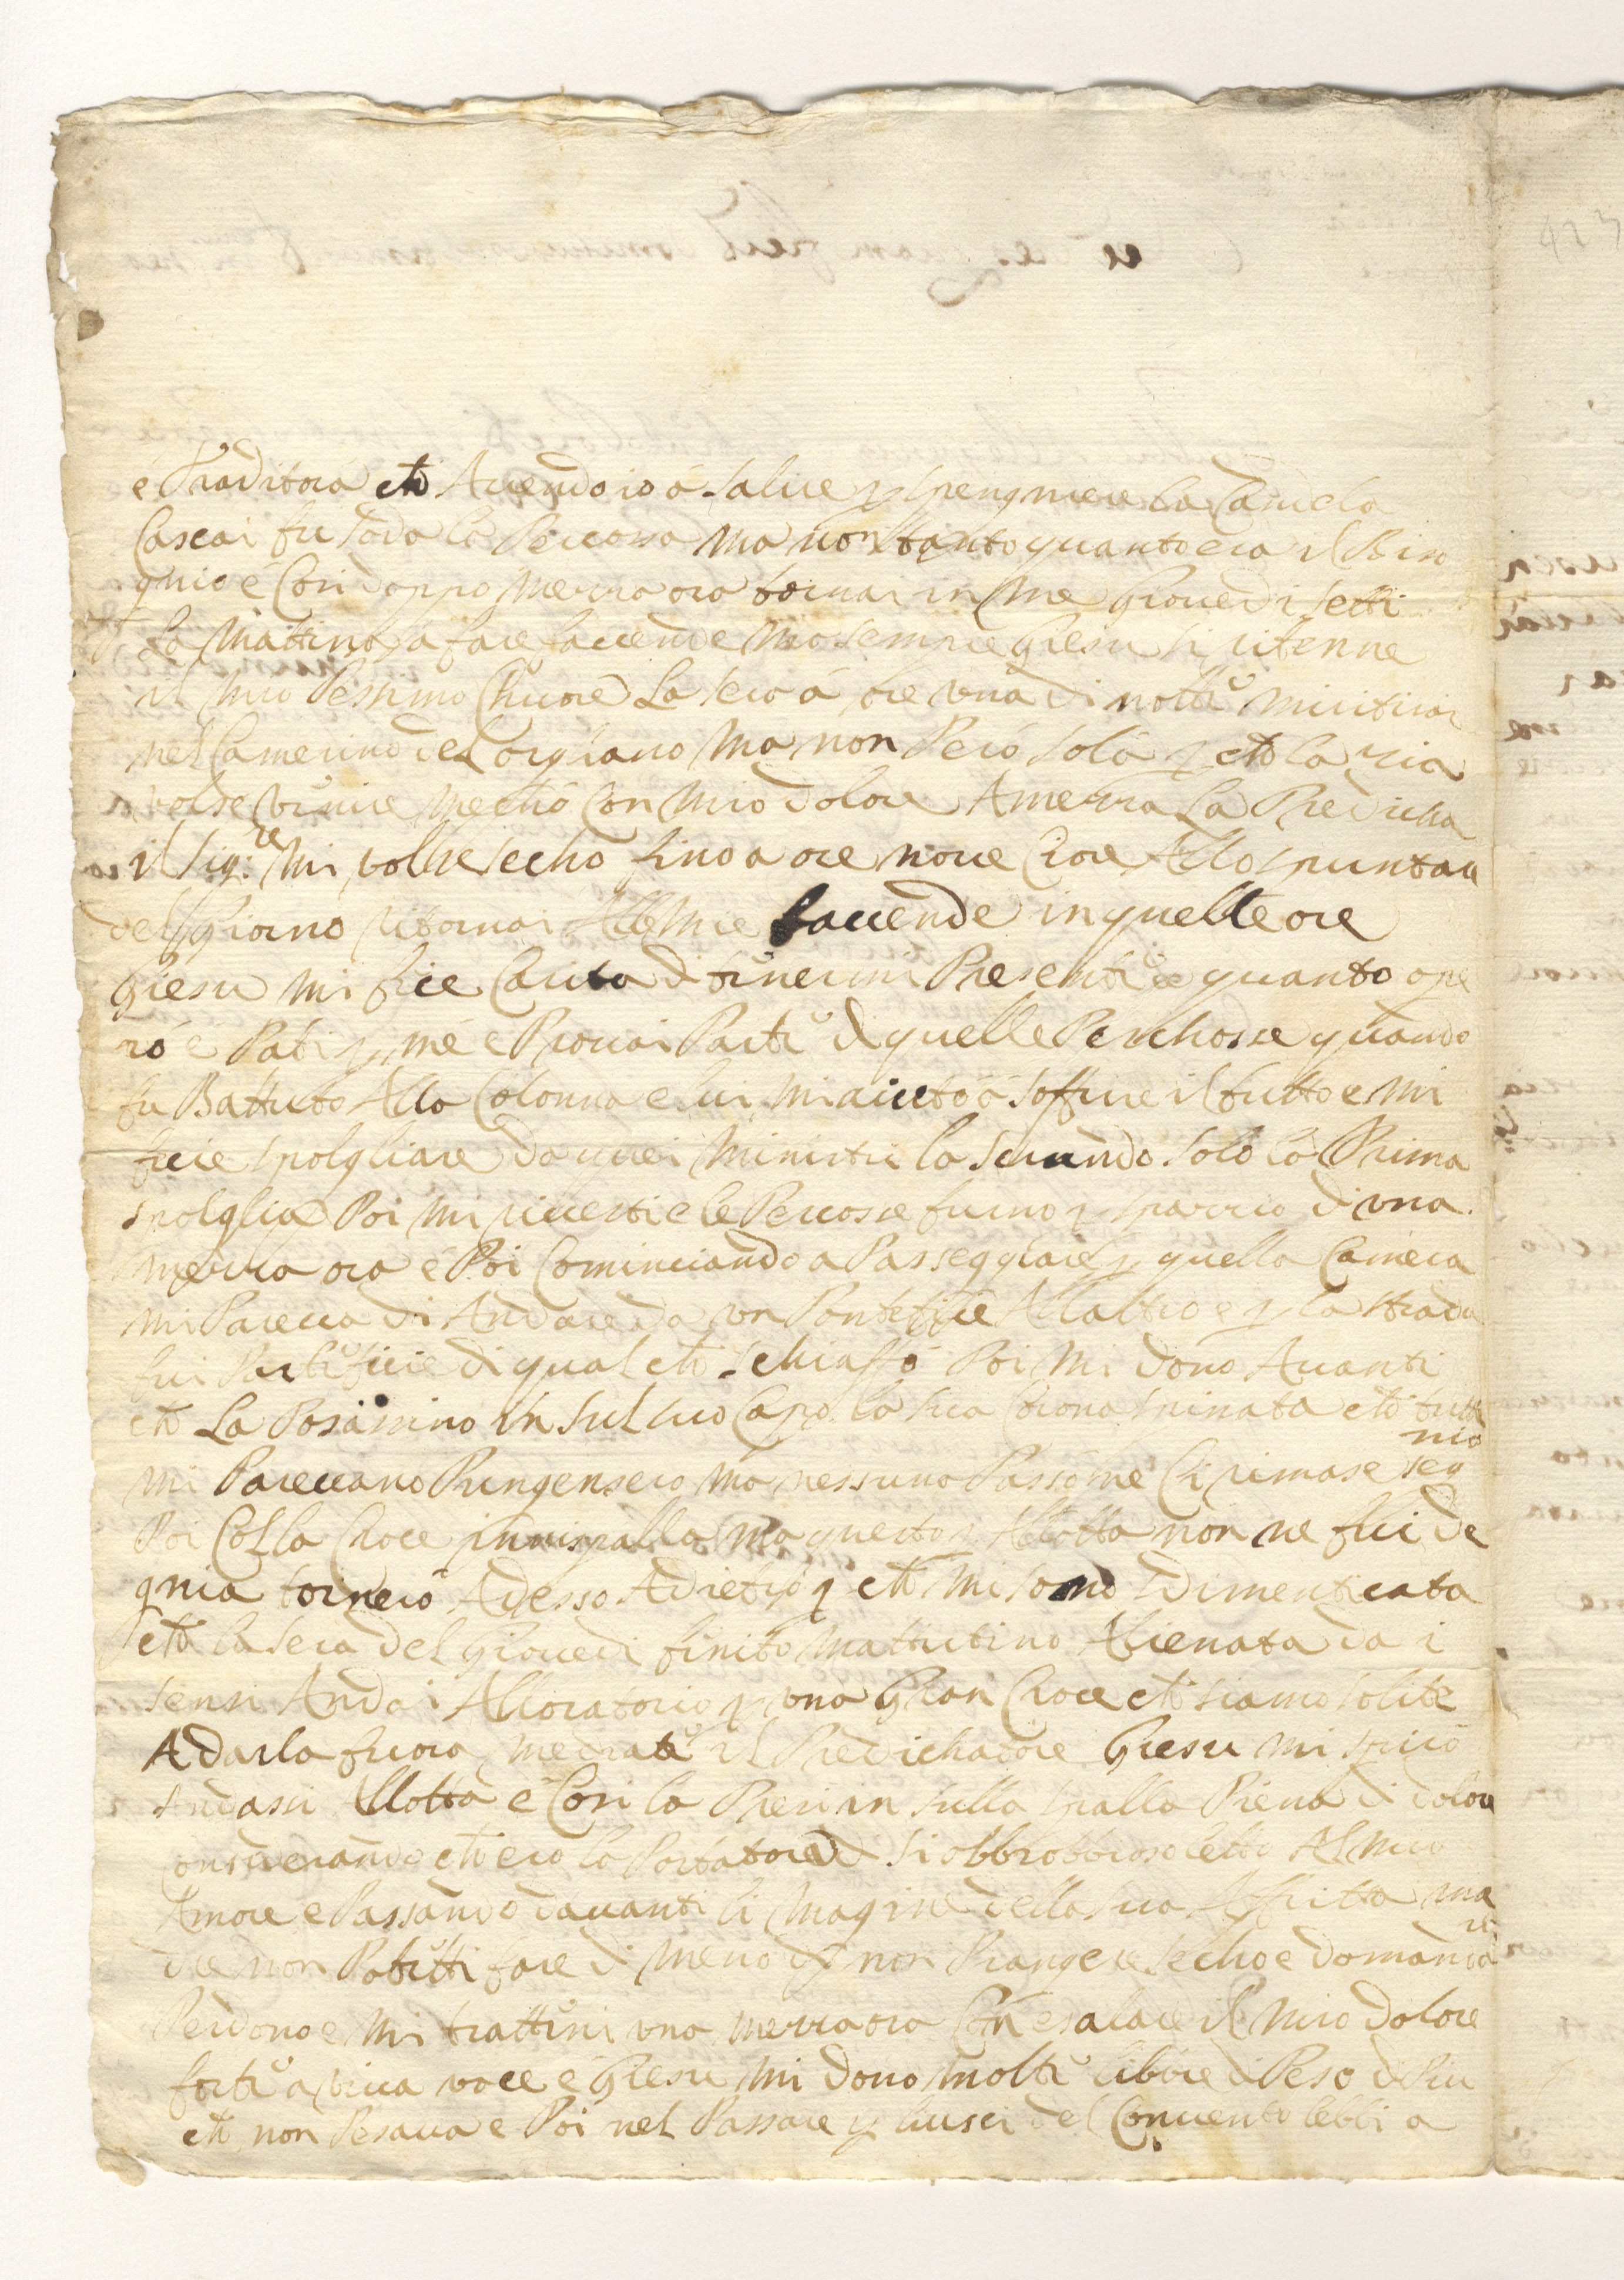 é Traditora che Avendo io á salire p spengniere la Camela
Cascai fu soda la Percossa ma non tanto quanto era il Biso
gnio é Cosi doppo mezza ora tornai in me giovedi stetti
la mattina a fare facende ma sempre giesu si ritenne
il mio Pessimo Chuore la sera á ore una di notte mi ritirai
nel Camerino del orghano ma non Peró sola p che la zia
volse venire mecho con mio dolore A mezza la Predicha
il Sig:re mi volse secho fino a ore nove Cioe Allo spuntare
del giorno ritornai Alle mie facende in quelle ore
giesu mi fice Carita di tenermi Presente quanto ope
ró é Pati p me é Provai Parte di quelle Perchosse quando
fu Battuto Alla Colonna e lui mi aiutó á soffrire il tutto e mi
fecie spolgliare da quei ministri lasciando solo la Prima
spolglia Poi mi rivestì e le Percosse furno p spazzio di una
mezza ora é Poi Cominciando a Passeggiare p quella Camera
mi Pareva di Andare da un Pontefice All altro e p la strada
fui Partefice di qual che schiaffo Poi mi dono Avanti
che La Posassino in sul suo Capo la sua Corona spinata che tutta
mi Parevano Pungensero ma nessuno Passó me Ci rimase seg
nio
Poi Colla Croce in mispalla ma questo p Allotta non ne fui de
gnia torneró Adesso Adietro p che mi sono Adimenticata
che la sera del giovedi finito mattutino Alienata da i
sensi Andai All oratorio p una gran Croce che siamo solite
A darla fuora mentre il Predichatore giesu mi spiró
Andassi Allotta é Cosi la Presi in sulla spalla Piena di dolore
Considerando che ero la Portatora di si obbrobbrioso letto Al mio
Amore e Passando davanti li Imagine della sua Afflitta ma
dre non Potetti fare di meno di non Piangere secho e domanda
re
Perdono e mi trattini una mezza ora Con esalare il mio dolore
forte a viva voce é giesu mi dono molte libire di Peso di Piu
che non Pesava e Poi nel Passare p lusci del Convento lebbi a